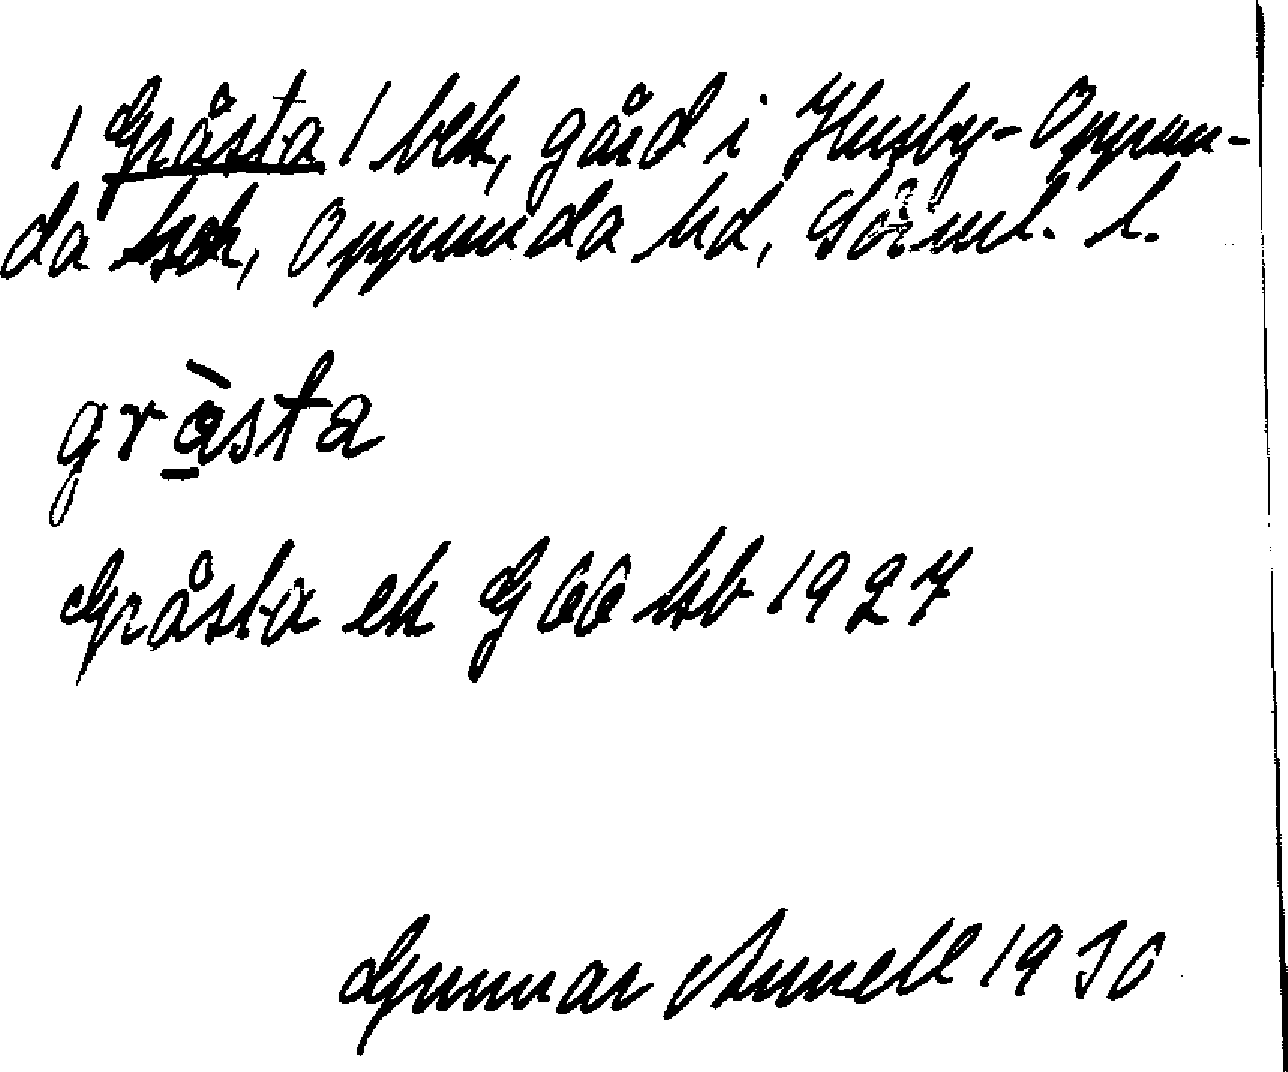 / Gråsta / bek, gård i Husby-Oppun-
da sck, Oppunda hd, Sörml. l.
gràsta
Gråsta ek G 66 kb 1927
Gunnar Annell 1930